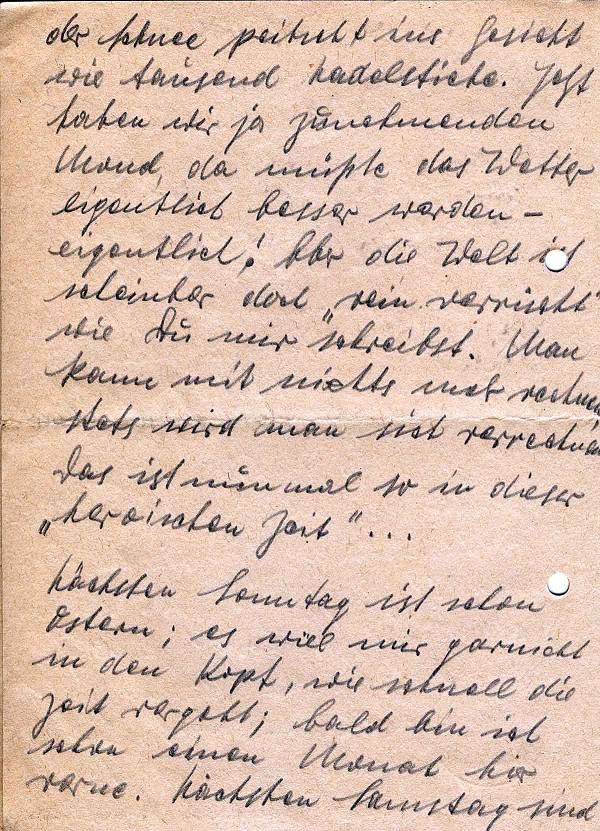 der Schnee peitscht ins Gesicht
wie tausend Nadelstiche. Jetzt
haben wir ja zunehmenden
Mond, da müßte das Wetter
eigentlich besser werden –
eigentlich! Aber die Welt ist
scheinbar doch „rein verrückt"
wie Du mir schreibst. Man
kann mit nichts mehr rechnen
stets wird man sich verrechnen
Das ist nun mal so in dieser
„heroischen Zeit" ...
Nächsten Sonntag ist schon
Ostern; es will mir garnicht
in den Kopf, wie schnell die
Zeit vergeht; bald bin ich
schon einen Monat hier
vorne. Nächsten Samstag sind